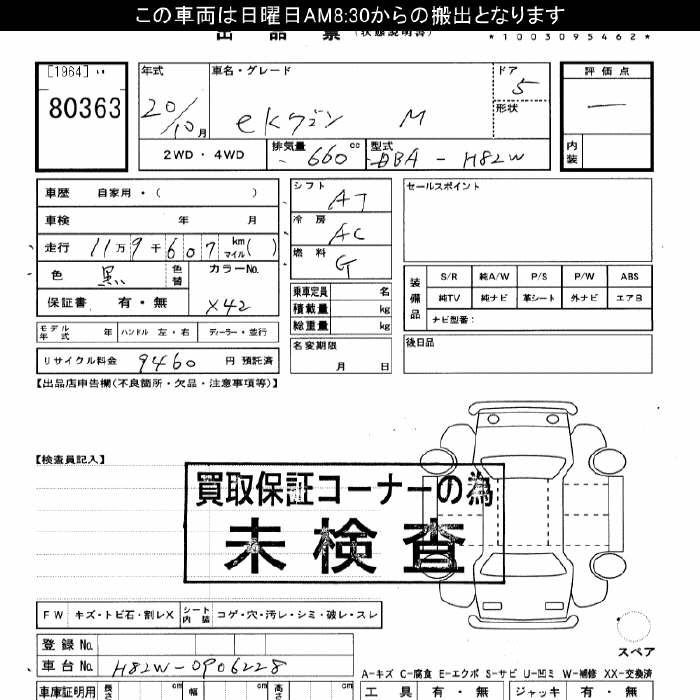 この車両は日曜日AM8:30からの搬出となります
出品票 (状態説明書) *1003095462*
[1964] い
80363
年式 20/10月
車名・グレード ekワゴン M
ドア 5
形状
評価点 —
内装
2WD・4WD
排気量 660 cc
型式 DBA-H82W
車歴 自家用・( )
車検 年 月
走行 11万9千607 km マイル( )
色 黒 色替 カラーNo. X42
保証書 有・無
モデル年式 年 ハンドル 左・右 ディーラー・並行
リサイクル料金 9460 円 預託済
シフト AT
冷房 AC
燃料 G
乗車定員 名
積載量 kg
総重量 kg
名変期限 月 日
セールスポイント
装備品 S/R 純A/W P/S P/W ABS
純TV 純ナビ 革シート 外ナビ エアB
ナビ型番:
後日品
【出品店申告欄(不良箇所・欠品・注意事項等)】
【検査員記入】
買取保証コーナーの為
未検査
FW キズ・トビ石・割レX シート内装 コゲ・穴・汚レ・シミ・破レ・スレ
スペア
登録No.
車台No. H82W-0906228
A-キズ C-腐食 E-エクボ S-サビ U-凹ミ W-補修 XX-交換済
車庫証明用 長さ cm 幅 cm 高さ cm
工具 有・無 ジャッキ 有・無